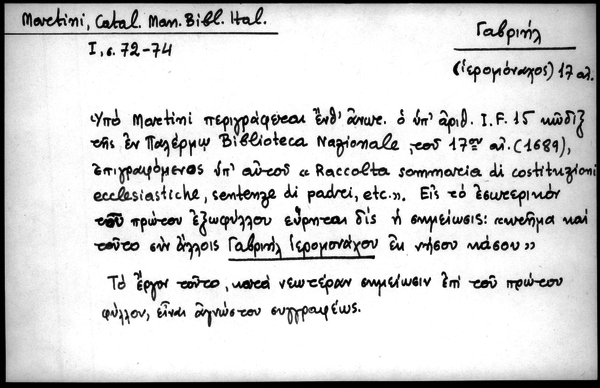 Martini, Catal. Man. Bibl. Ital.
I, σ. 72-74
Γαβριήλ
(ἱερομόναχος) 17 αἰ.
Ὑπὸ Martini περιγράφεται ἔνθ' ἀνωτ. ὁ ὑπ' ἀριθ. I.F. 15 κῶδιξ
τῆς ἐν Παλέρμῳ Biblioteca Nazionale, τοῦ 17ου αἰ. (1689),
ἐπιγραφόμενος ὑπ' αὐτοῦ « Raccolta sommaria di costituzioni
ecclesiastiche, sentenze di padri, etc.». Εἰς τὸ ἐσωτερικὸν
τοῦ πρώτου ἐξωφύλλου εὕρηται δὶς ἡ σημείωσις: «κτῆμα καὶ
τοῦτο σὺν ἄλλοις Γαβριὴλ ἱερομονάχου ἐκ νήσου κάσου»
Τὸ ἔργον τοῦτο, κατὰ νεωτέραν σημείωσιν ἐπὶ τοῦ πρώτου
φύλλου, εἶναι ἀγνώστου συγγραφέως.